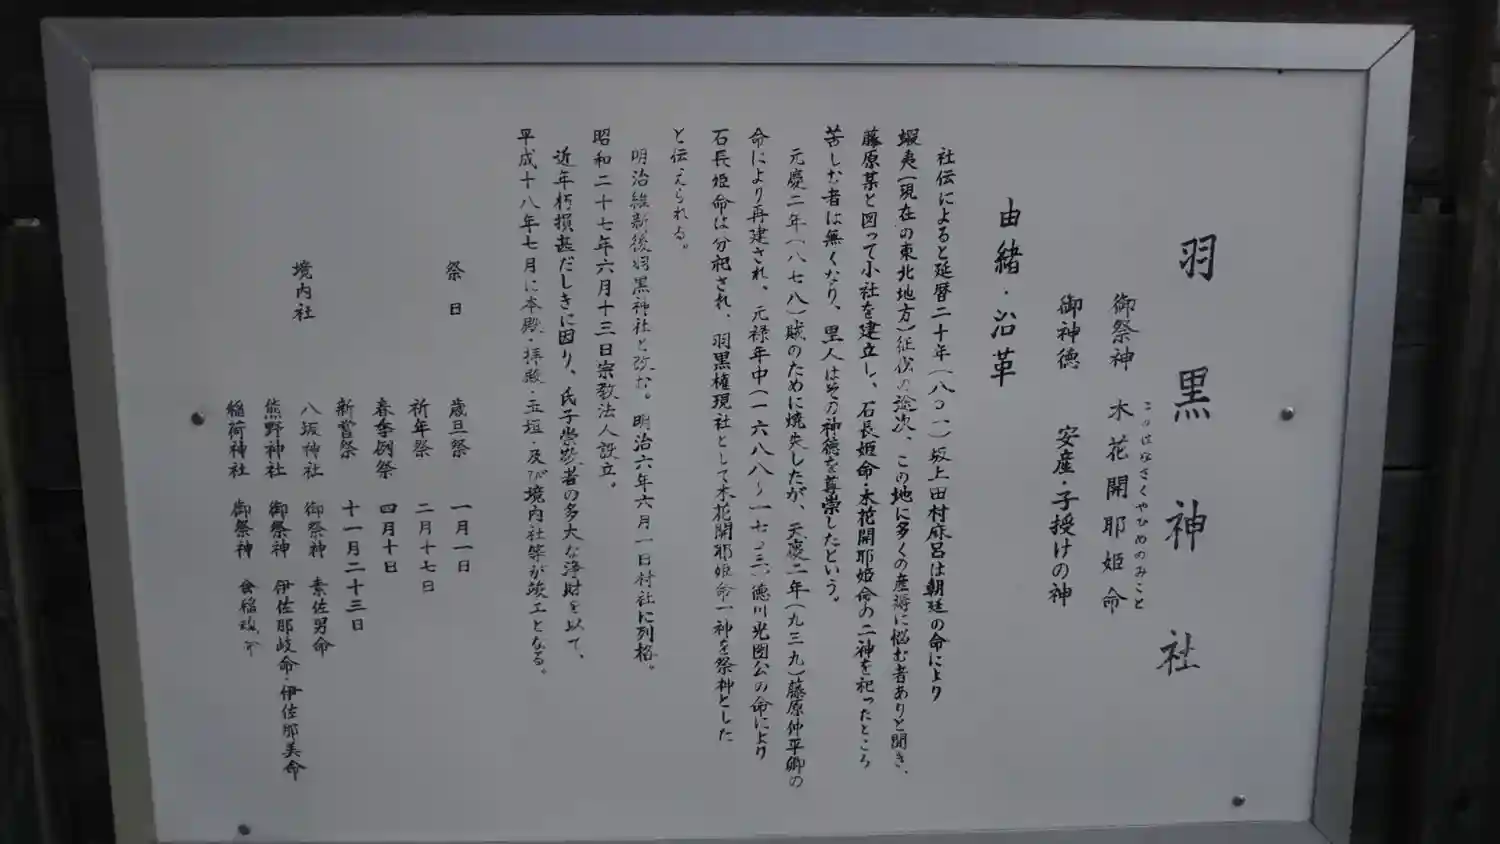 羽黒神社
御祭神 木花開耶姫命
このはなさくやひめのみこと
御神徳 安産・子授けの神
由緒・沿革
社伝によると延暦二十年(八〇一)坂上田村麻呂は朝廷の命により
蝦夷(現在の東北地方)征伐の途次、この地に多くの産褥に悩む者ありと聞き、
藤原某と図って小社を建立し、石長姫命・木花開耶姫命の二神を祀ったところ
苦しむ者は無くなり、里人はその神徳を尊崇したという。
元慶二年(八七八)賊のために焼失したが、天慶二年(九三九)藤原仲平卿の
命により再建され、元禄年中(一六八八〜一七〇三)徳川光圀公の命により
石長姫命は分祀され、羽黒権現社として木花開耶姫命一神を祭神とした
と伝えられる。
明治維新後羽黒神社と改む。明治六年六月一日村社に列格。
昭和二十七年六月十三日宗教法人設立。
近年朽損甚だしきに因り、氏子崇敬者の多大な浄財を以て、
平成十八年七月に本殿・拝殿・玉垣・及び境内社等が竣工となる。
祭日 歳旦祭 一月一日
祈年祭 二月十七日
春季例祭 四月十日
新嘗祭 十一月二十三日
境内社 八坂神社 御祭神 素佐男命
熊野神社 御祭神 伊佐那岐命・伊佐那美命
稲荷神社 御祭神 倉稲魂命